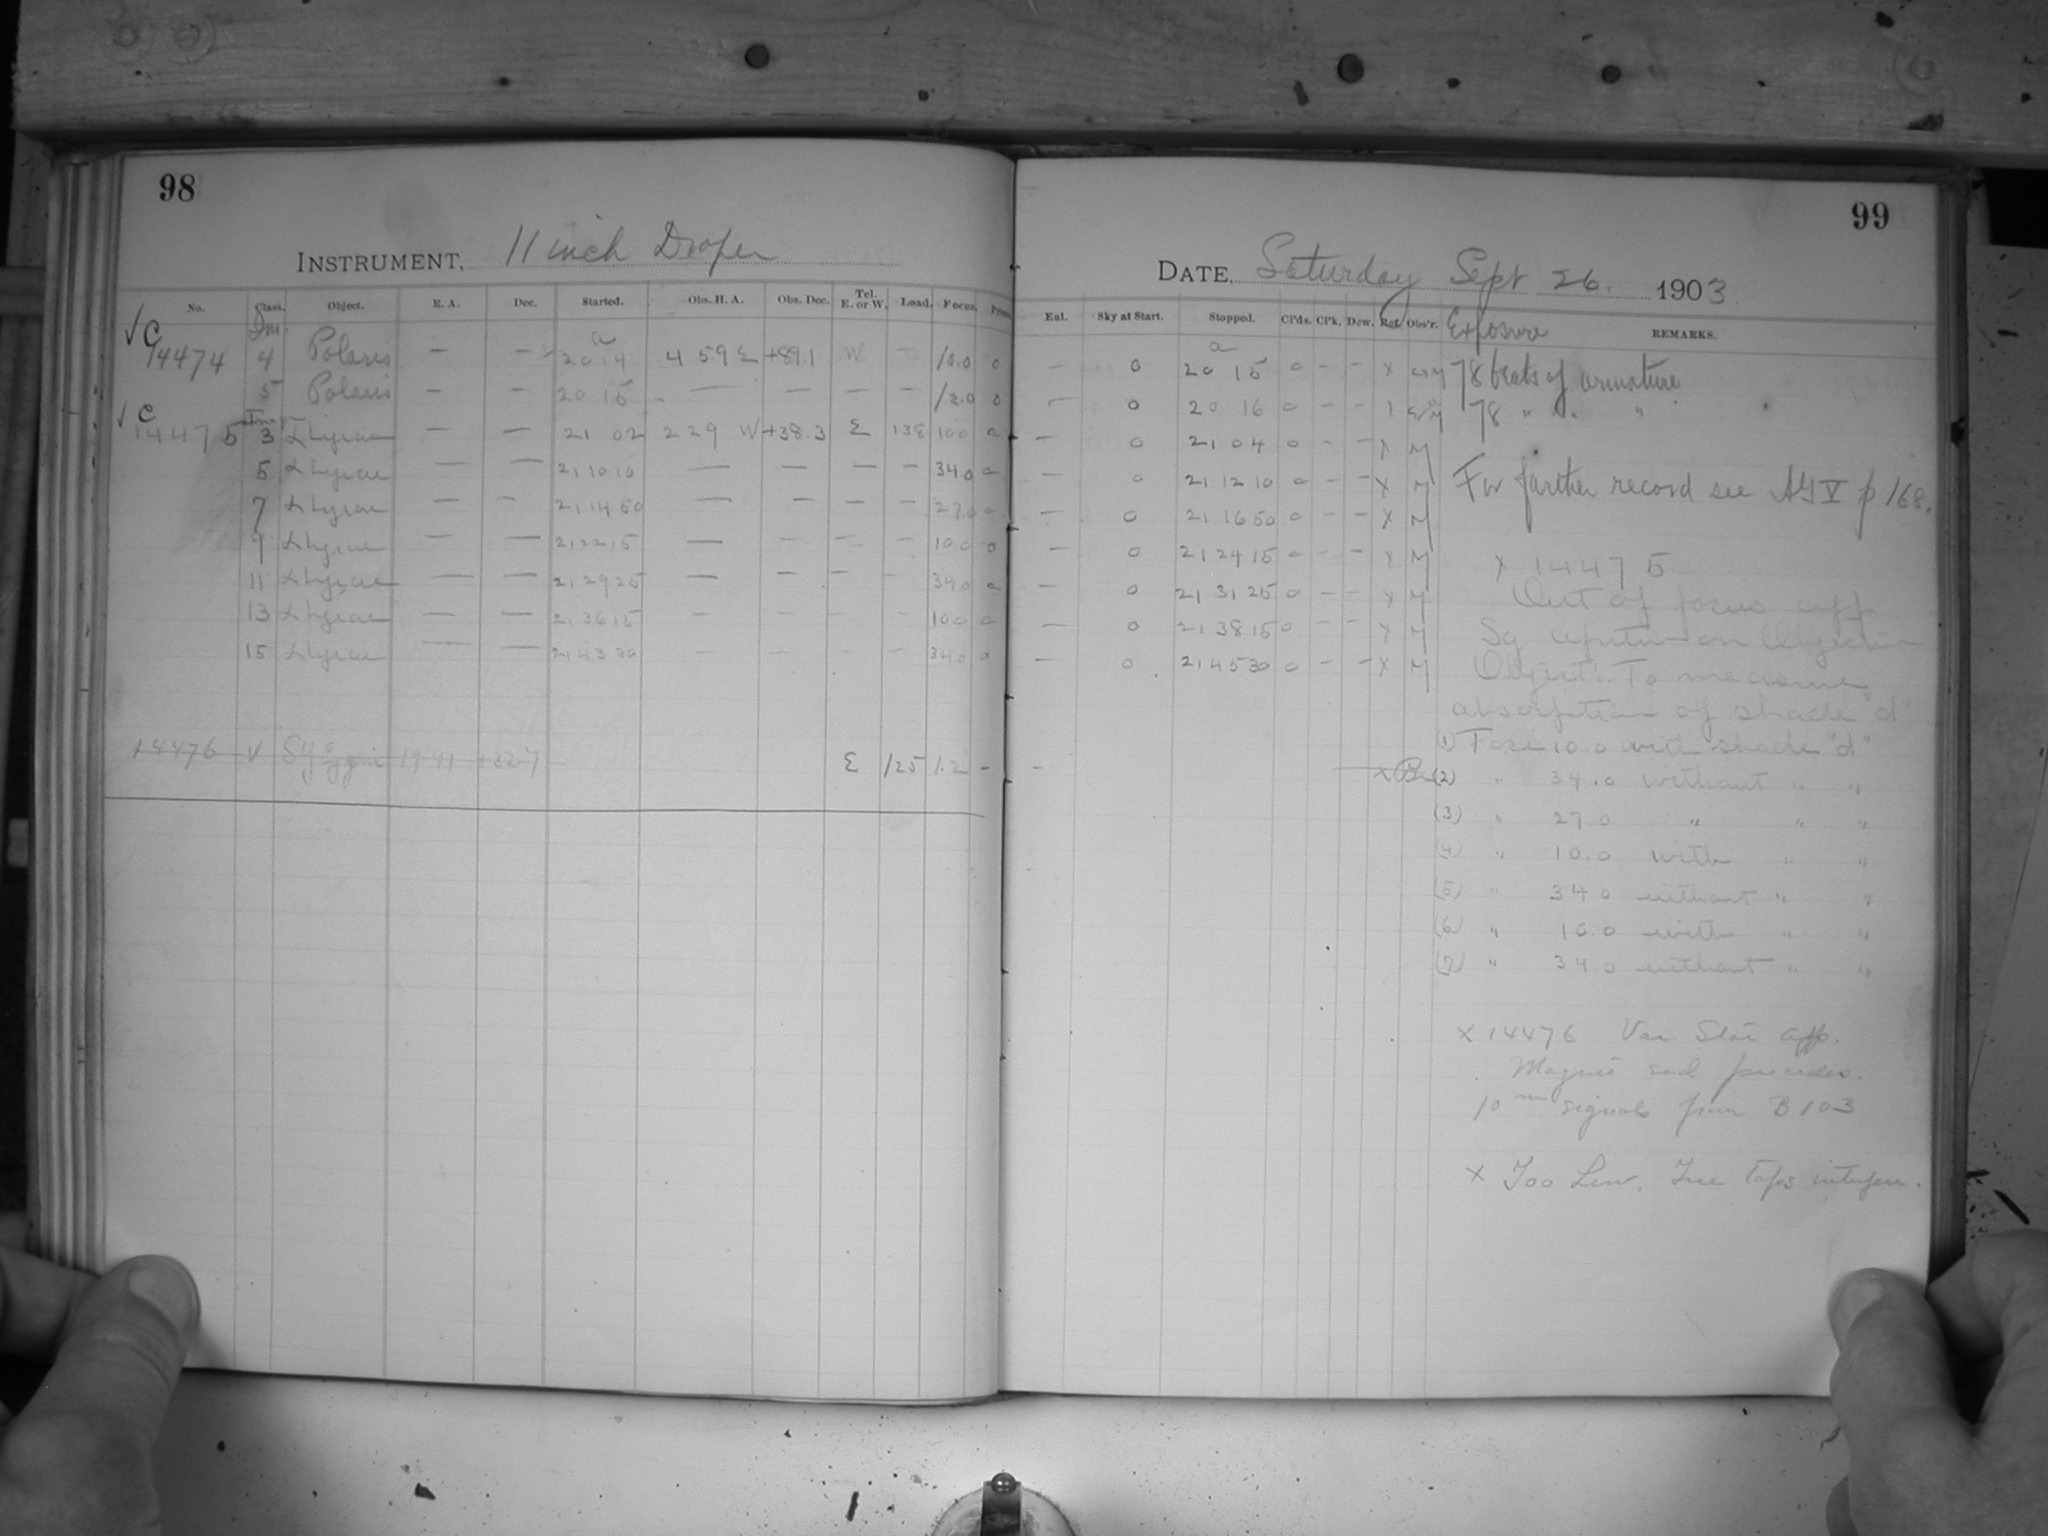 98
INSTRUMENT, 11 inch Draper
No. Class. Object. R. A. Dec. Started. Obs. H. A. Obs. Dec. Tel. E. or W. Load. Focus.
√ C Im. a
14474 4 Polaris — — 20 14 4 59 E +89.1 W — 10.0 0
5 Polaris — — 20 15 — — — — 12.0 0
√ C
14475 3 α Lyrae — — 21 02 2 29 W +38.3 E 138 10.0 0
5 α Lyrae — — 21 10 10 — — — — 34.0 0
7 α Lyrae — — 21 14 50 — — — — 27.0 0
9 α Lyrae — — 21 22 15 — — — — 10.0 0
11 α Lyrae — — 21 29 25 — — — — 34.0 0
13 α Lyrae — — 21 36 15 — — — — 10.0 0
15 α Lyrae — — 21 43 30 — — — — 34.0 0
14476 V SY Cygni 19 41 +32.7 E 125 1.2 —
99
DATE, Saturday Sept 26. 1903
Eul. Sky at Start. Stopped. Cl'ds. Cl'k. Dew. Ref. Obs'r. Exposure REMARKS.
a
— 0 20 15 0 — — X M 78 beats of armature
— 0 20 16 0 — — M 78 " . "
— 0 21 04 0 — — X M
— 0 21 12 10 0 — — X M For further record see AG V p 168.
— 0 21 16 50 0 — — X M
— 0 21 24 15 0 — — X M X 14475
— 0 21 31 25 0 — — X M Out of focus app
— 0 21 38 15 0 — — X M Sq aperture on Objective
— 0 21 45 30 0 — — X M Object: To measure
absorption of shade "d"
(1) Foc. 10.0 with shade "d"
— X (2) " 34.0 without " "
(3) " 27.0 " " "
(4) " 10.0 with " "
(5) " 34.0 without " "
(6) " 10.0 with " "
(7) " 34.0 without " "
X 14476 Var. Star app.
Magnet end precedes.
10 m signals from B 103
X Too Low, Tree tops interfere.